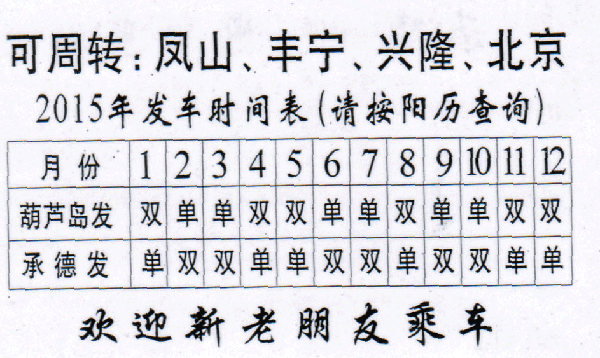 可周转：凤山、丰宁、兴隆、北京
2015年发车时间表(请按阳历查询)
月份 1 2 3 4 5 6 7 8 9 10 11 12
葫芦岛发 双 单 单 双 双 单 单 双 单 单 双 双
承德发 单 双 双 单 单 双 双 单 双 双 单 单
欢迎新老朋友乘车